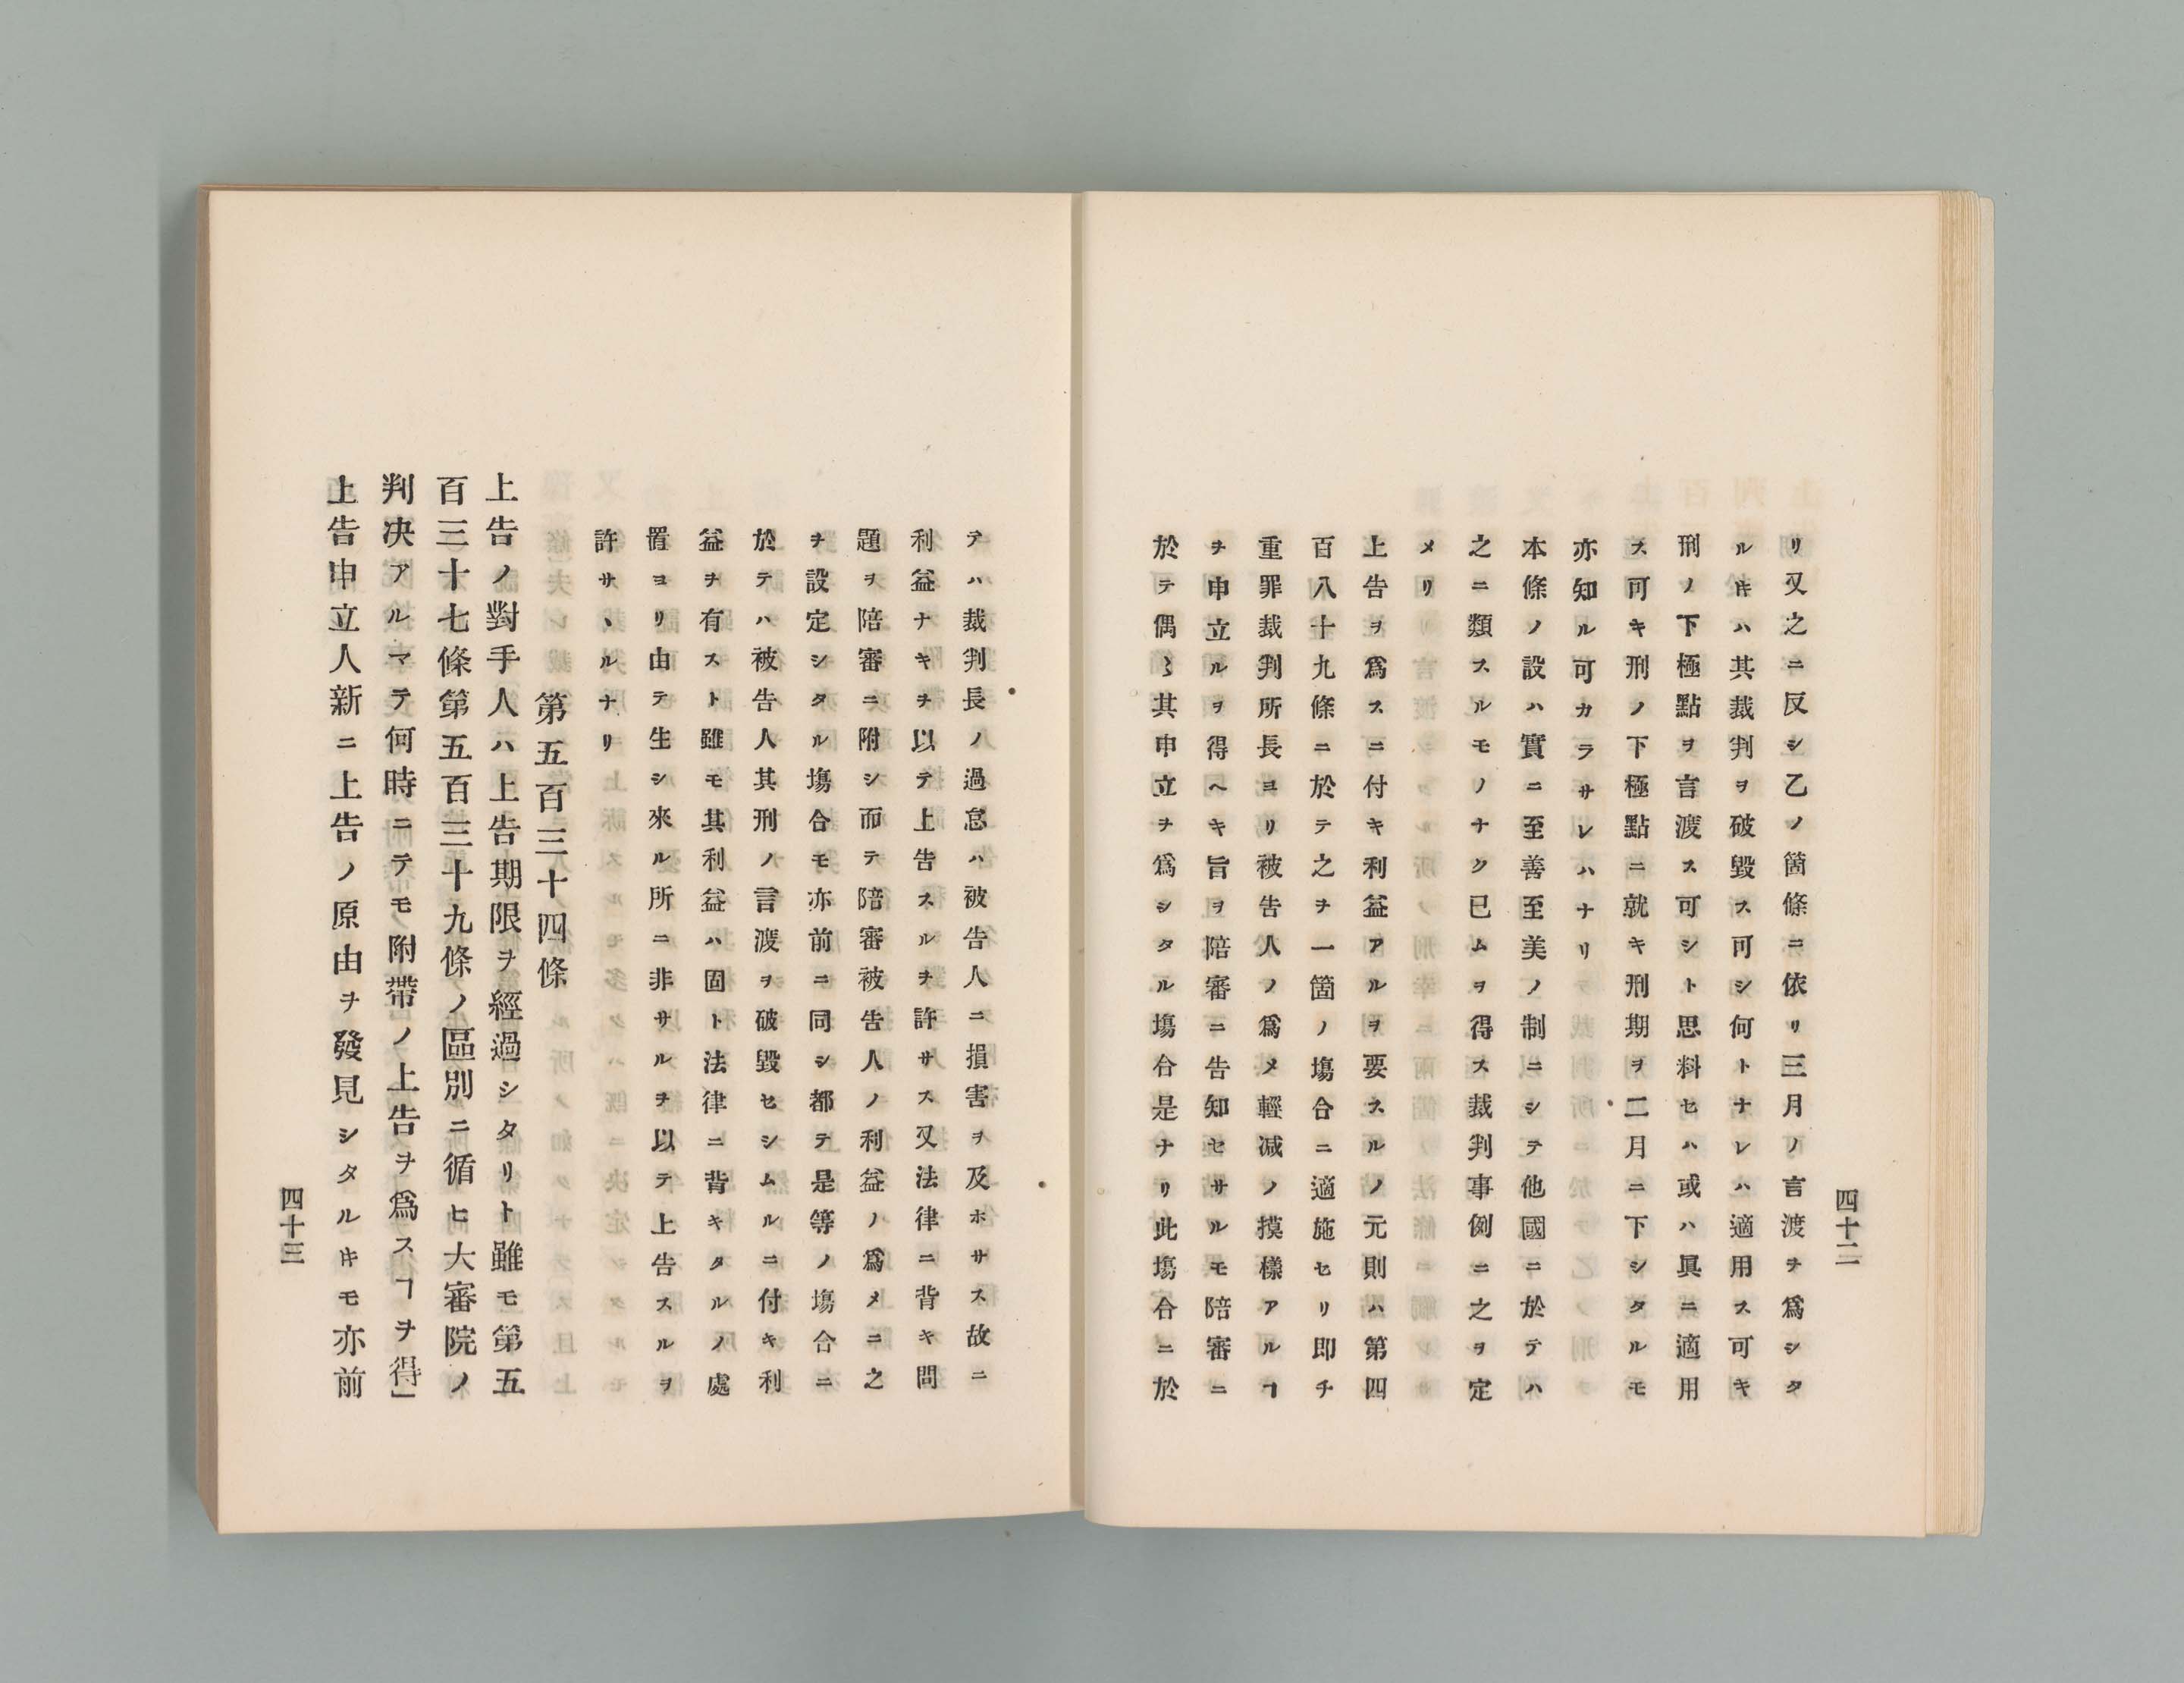 リ又之ニ反シ乙ノ箇條ニ依リ三月ノ言渡ヲ爲シタ
ルキハ其裁判ヲ破毀ス可シ何トナレハ適用ス可キ
刑ノ下極點ヲ言渡ス可シト思料セハ或ハ具ニ適用
ス可キ刑ノ下極點ニ就キ刑期ヲ二月ニ下シタルモ
亦知ル可カラサレハナリ
本條ノ設ハ實ニ至善至美ノ制ニシテ他國ニ於テハ
之ニ類スルモノナク已ムヲ得ス裁判事例ニ之ヲ定
メリ
上告ヲ爲スニ付キ利益アルヲ要スルノ元則ハ第四
百八十九條ニ於テ之ヲ一箇ノ塲合ニ適施セリ即チ
重罪裁判所長ヨリ被告人ノ爲メ輕减ノ摸樣アルヿ
ヲ申立ルヲ得ヘキ旨ヲ陪審ニ告知セサルモ陪審ニ
於テ偶〻其申立ヲ爲シタル塲合是ナリ此塲合ニ於
四十二
テハ裁判長ノ過怠ハ被告人ニ損害ヲ及ホサス故ニ
利益ナキヲ以テ上告スルヲ許サス又法律ニ背キ問
題ヲ陪審ニ附シ而テ陪審被告人ノ利益ノ爲メニ之
ヲ設定シタル塲合モ亦前ニ同シ都テ是等ノ塲合ニ
於テハ被告人其刑ノ言渡ヲ破毀セシムルニ付キ利
益ヲ有スト雖モ其利益ハ固ト法律ニ背キタルノ處
置ヨリ由テ生シ來ル所ニ非サルヲ以テ上告スルヲ
許サヽルナリ
第五百三十四條
上告ノ對手人ハ上告期限ヲ經過シタリト雖モ第五
百三十七條第五百三十九條ノ區別ニ循ヒ大審院ノ
判决アルマテ何時ニテモ附帶ノ上告ヲ爲スヿヲ得」
上告申立人新ニ上告ノ原由ヲ發見シタルキモ亦前
四十三